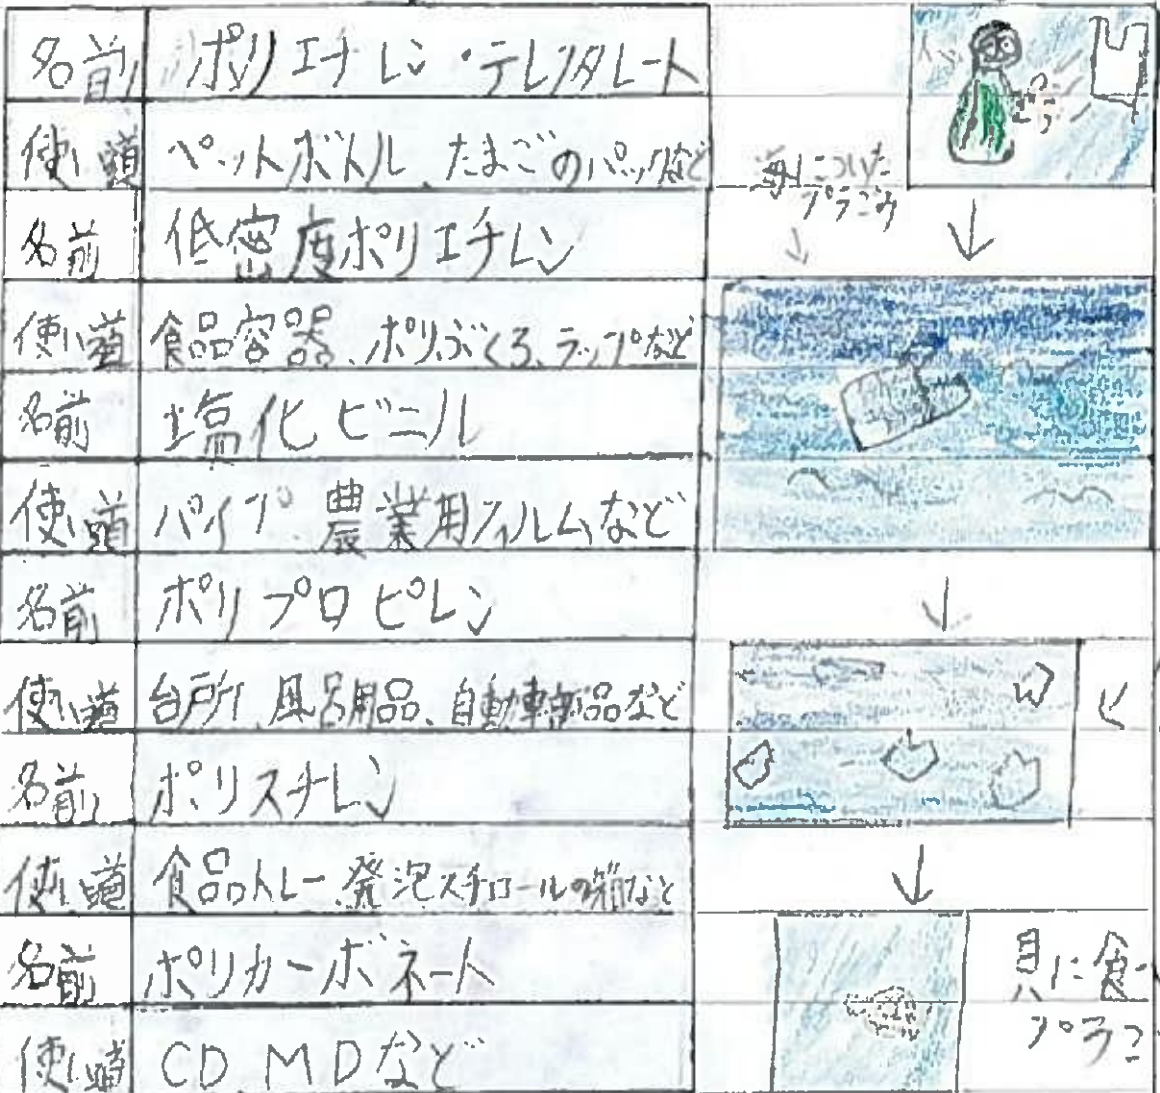 名前 ポリエチレン・テレフタレート
使い道 ペットボトル、たまごのパックなど
名前 低密度ポリエチレン
使い道 食品容器、ポリぶくろ、ラップなど
名前 塩化ビニル
使い道 パイプ、農業用フィルムなど
名前 ポリプロピレン
使い道 台所、風呂用品、自動車部品など
名前 ポリスチレン
使い道 食品トレー、発泡スチロールの箱など
名前 ポリカーボネート
使い道 CD、MDなど
海についた
プラごみ
貝に食
プラご